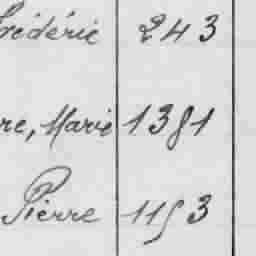 Frédéric 243
re, Marie 1381
Pierre 1153